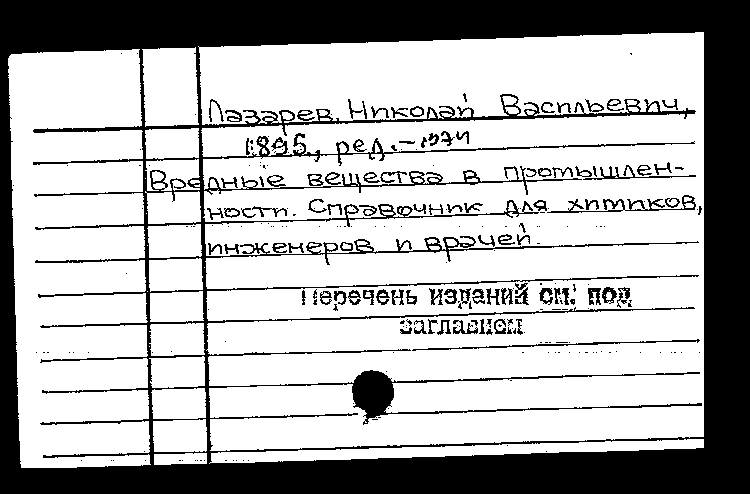 Лазарев, Николай Васильевич,
1895-, ред. -1974
Вредные вещества в промышлен-
ности. Справочник для химиков,
инженеров и врачей.
Перечень изданий см. под
заглавием